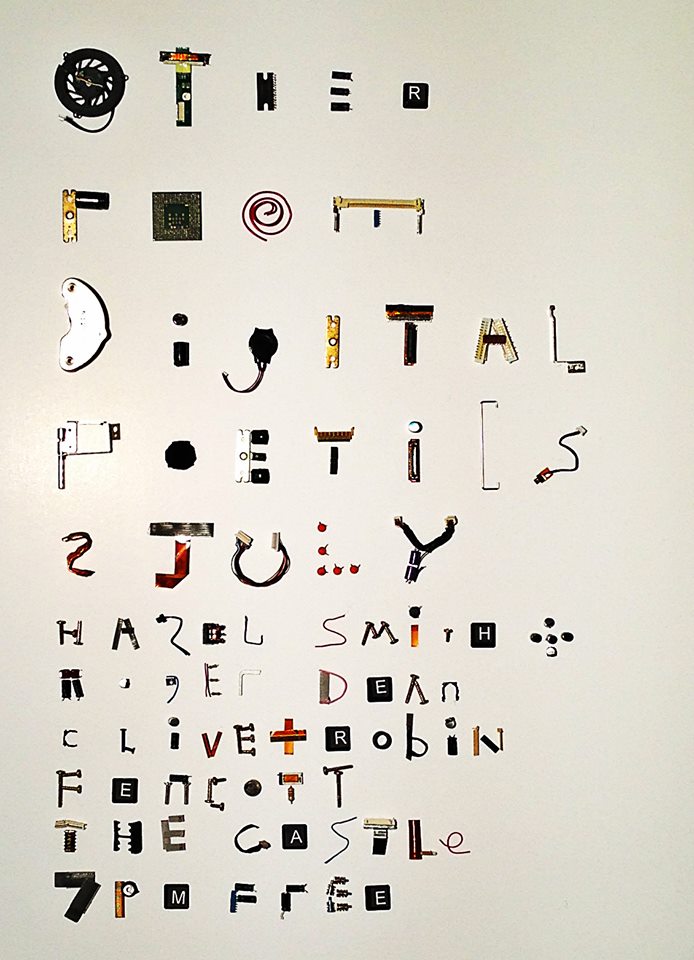 OTHER
rOOm
DigITAL
POETiCS
2 JULY
HAZEL SMirH +
rogEr DEAn
cLivE + RobiN
FEnCOTT
THE CASTLe
7PM FrEE